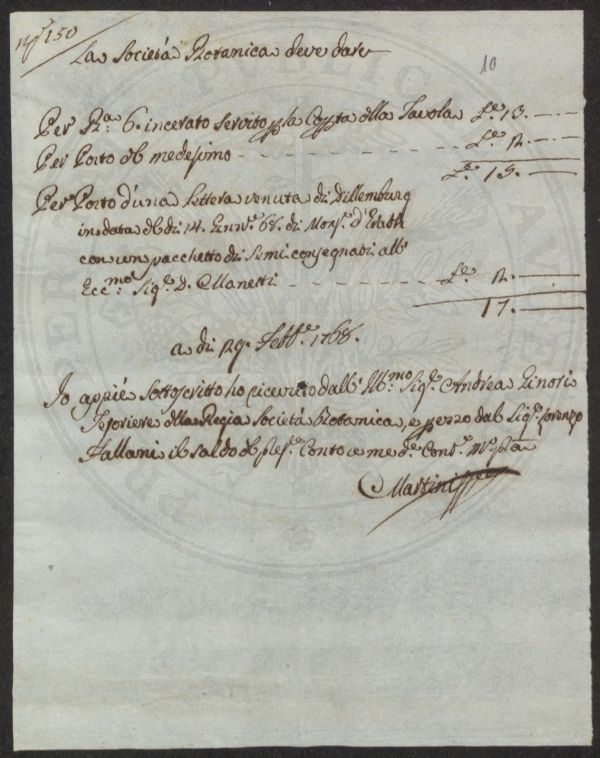 N.º 150
La Società Botanica deve dare
10
Per Bª 6. incerato servito p la Copta della Tavola £e 13. —
Per Porto del medesimo - - - £e 2. —
£e 15. —
Per Porto d'una Lettera venuta di Dillemburg
in data de di 14. Genn.º 68. di Mons.r
con un pacchetto di Semi consegnati all'
Ecc.mo Sig.e D. Manetti - - - £e 2. —
17. —
a di 29. Febb.e 1768.
Io appiè sottoscritto ho ricevuto dall' Ill.mo Sig.e Andrea Ginori
Tesoriere della Regia Società Botanica, e p mezzo dal Sig.e Lorenzo
Fallani il saldo del Conto
Martini